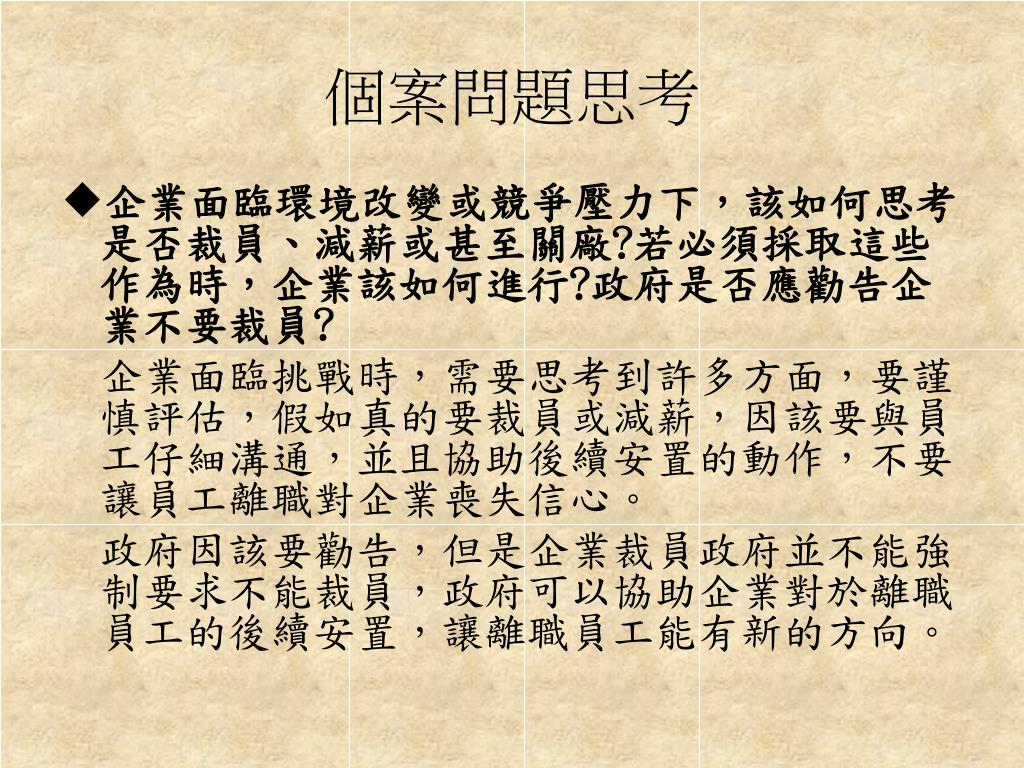 個案問題思考
◆企業面臨環境改變或競爭壓力下，該如何思考
是否裁員、減薪或甚至關廠?若必須採取這些
作為時，企業該如何進行?政府是否應勸告企
業不要裁員?
企業面臨挑戰時，需要思考到許多方面，要謹
慎評估，假如真的要裁員或減薪，因該要與員
工仔細溝通，並且協助後續安置的動作，不要
讓員工離職對企業喪失信心。
政府因該要勸告，但是企業裁員政府並不能強
制要求不能裁員，政府可以協助企業對於離職
員工的後續安置，讓離職員工能有新的方向。